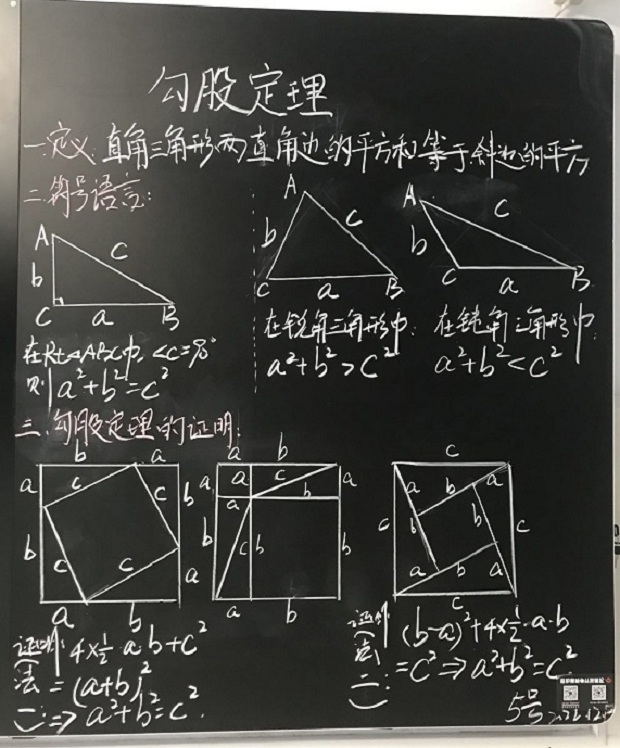 勾股定理
一.定义:直角三角形两直角边的平方和等于斜边的平方
二.符号语言:
A
b
c
C
a
B
在Rt△ABC中,∠C=90°
则 a²+b²=c²
A
b
c
C
a
B
在锐角三角形中
a²+b²>c²
A
b
c
C
a
B
在钝角三角形中
a²+b²<c²
三.勾股定理的证明:
b a
a c b
c
c
b c a
a b
a b
a a c a
a b
b c b b
a b
c
a b a
c b b c
b a
c
证明(法一): 4×½·a·b+c²
=(a+b)²
⇒a²+b²=c².
证明(法二): (b-a)²+4×½·a·b
=c²⇒a²+b²=c²
5号